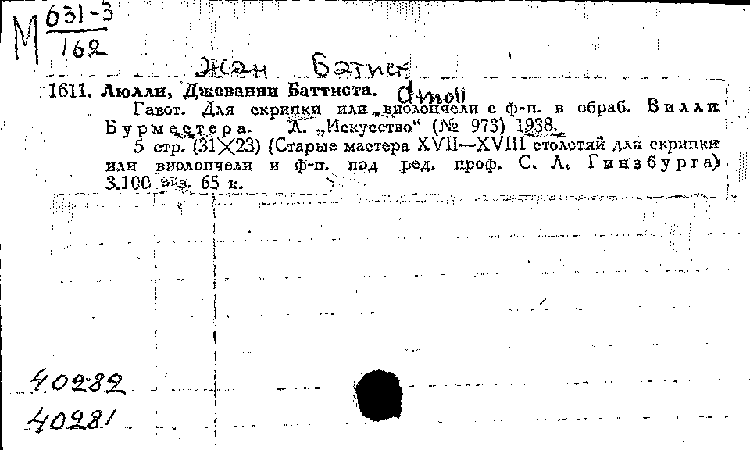 М 631-3
162
Жан Батист
1611. Люлли, Джованни Баттиста.
d moll
Гавот. Для скрипки или виолончели с ф-п. в обраб. Вилли
Бурместера. Л. „Искусство“ (№ 973) 1938.
5 стр. (31×23) (Старые мастера XVII—XVIII столетий для скрипки
или виолончели и ф-п. под ред. проф. С. Л. Гинзбурга)
3.100 экз. 65 к.
40282
40281